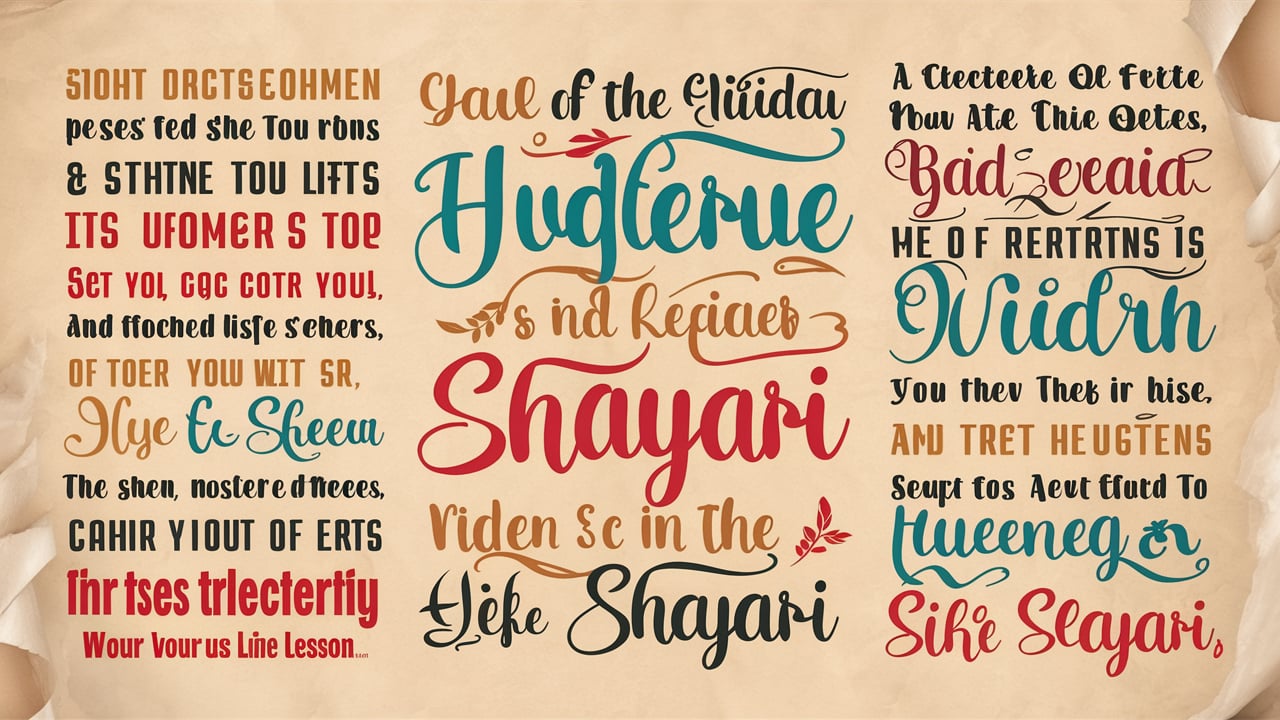 SIOHT DRCTSEOHMEN
peses fed She Tou rbns
& STHTNE TOU LIFTS
ITS UFOMER S TOP
SET YOL CQC COTR YOUL,
And ffoched lisfe s'ehers,
OF TOER YOLU WIT SR,
The shen, nostere dfteces,
CAHIR YIOUT OF ERTS
Ihr tses trlectertiy
Wour Vour us Line Lesson
of the
Hugferue
s ind Reciaeb
Shayari
Viden Sc in The
Shayari
A Ctecteeke Ol Fette
Nouv At.e Thie Oetes,
ME OF RERTRTNS IS
Wiidrh
You thev Thek ir hise,
AND TRET HEUGTENS
Seupt fos Aevt ffutd To
Hueeneg &
Sihe Slayari,